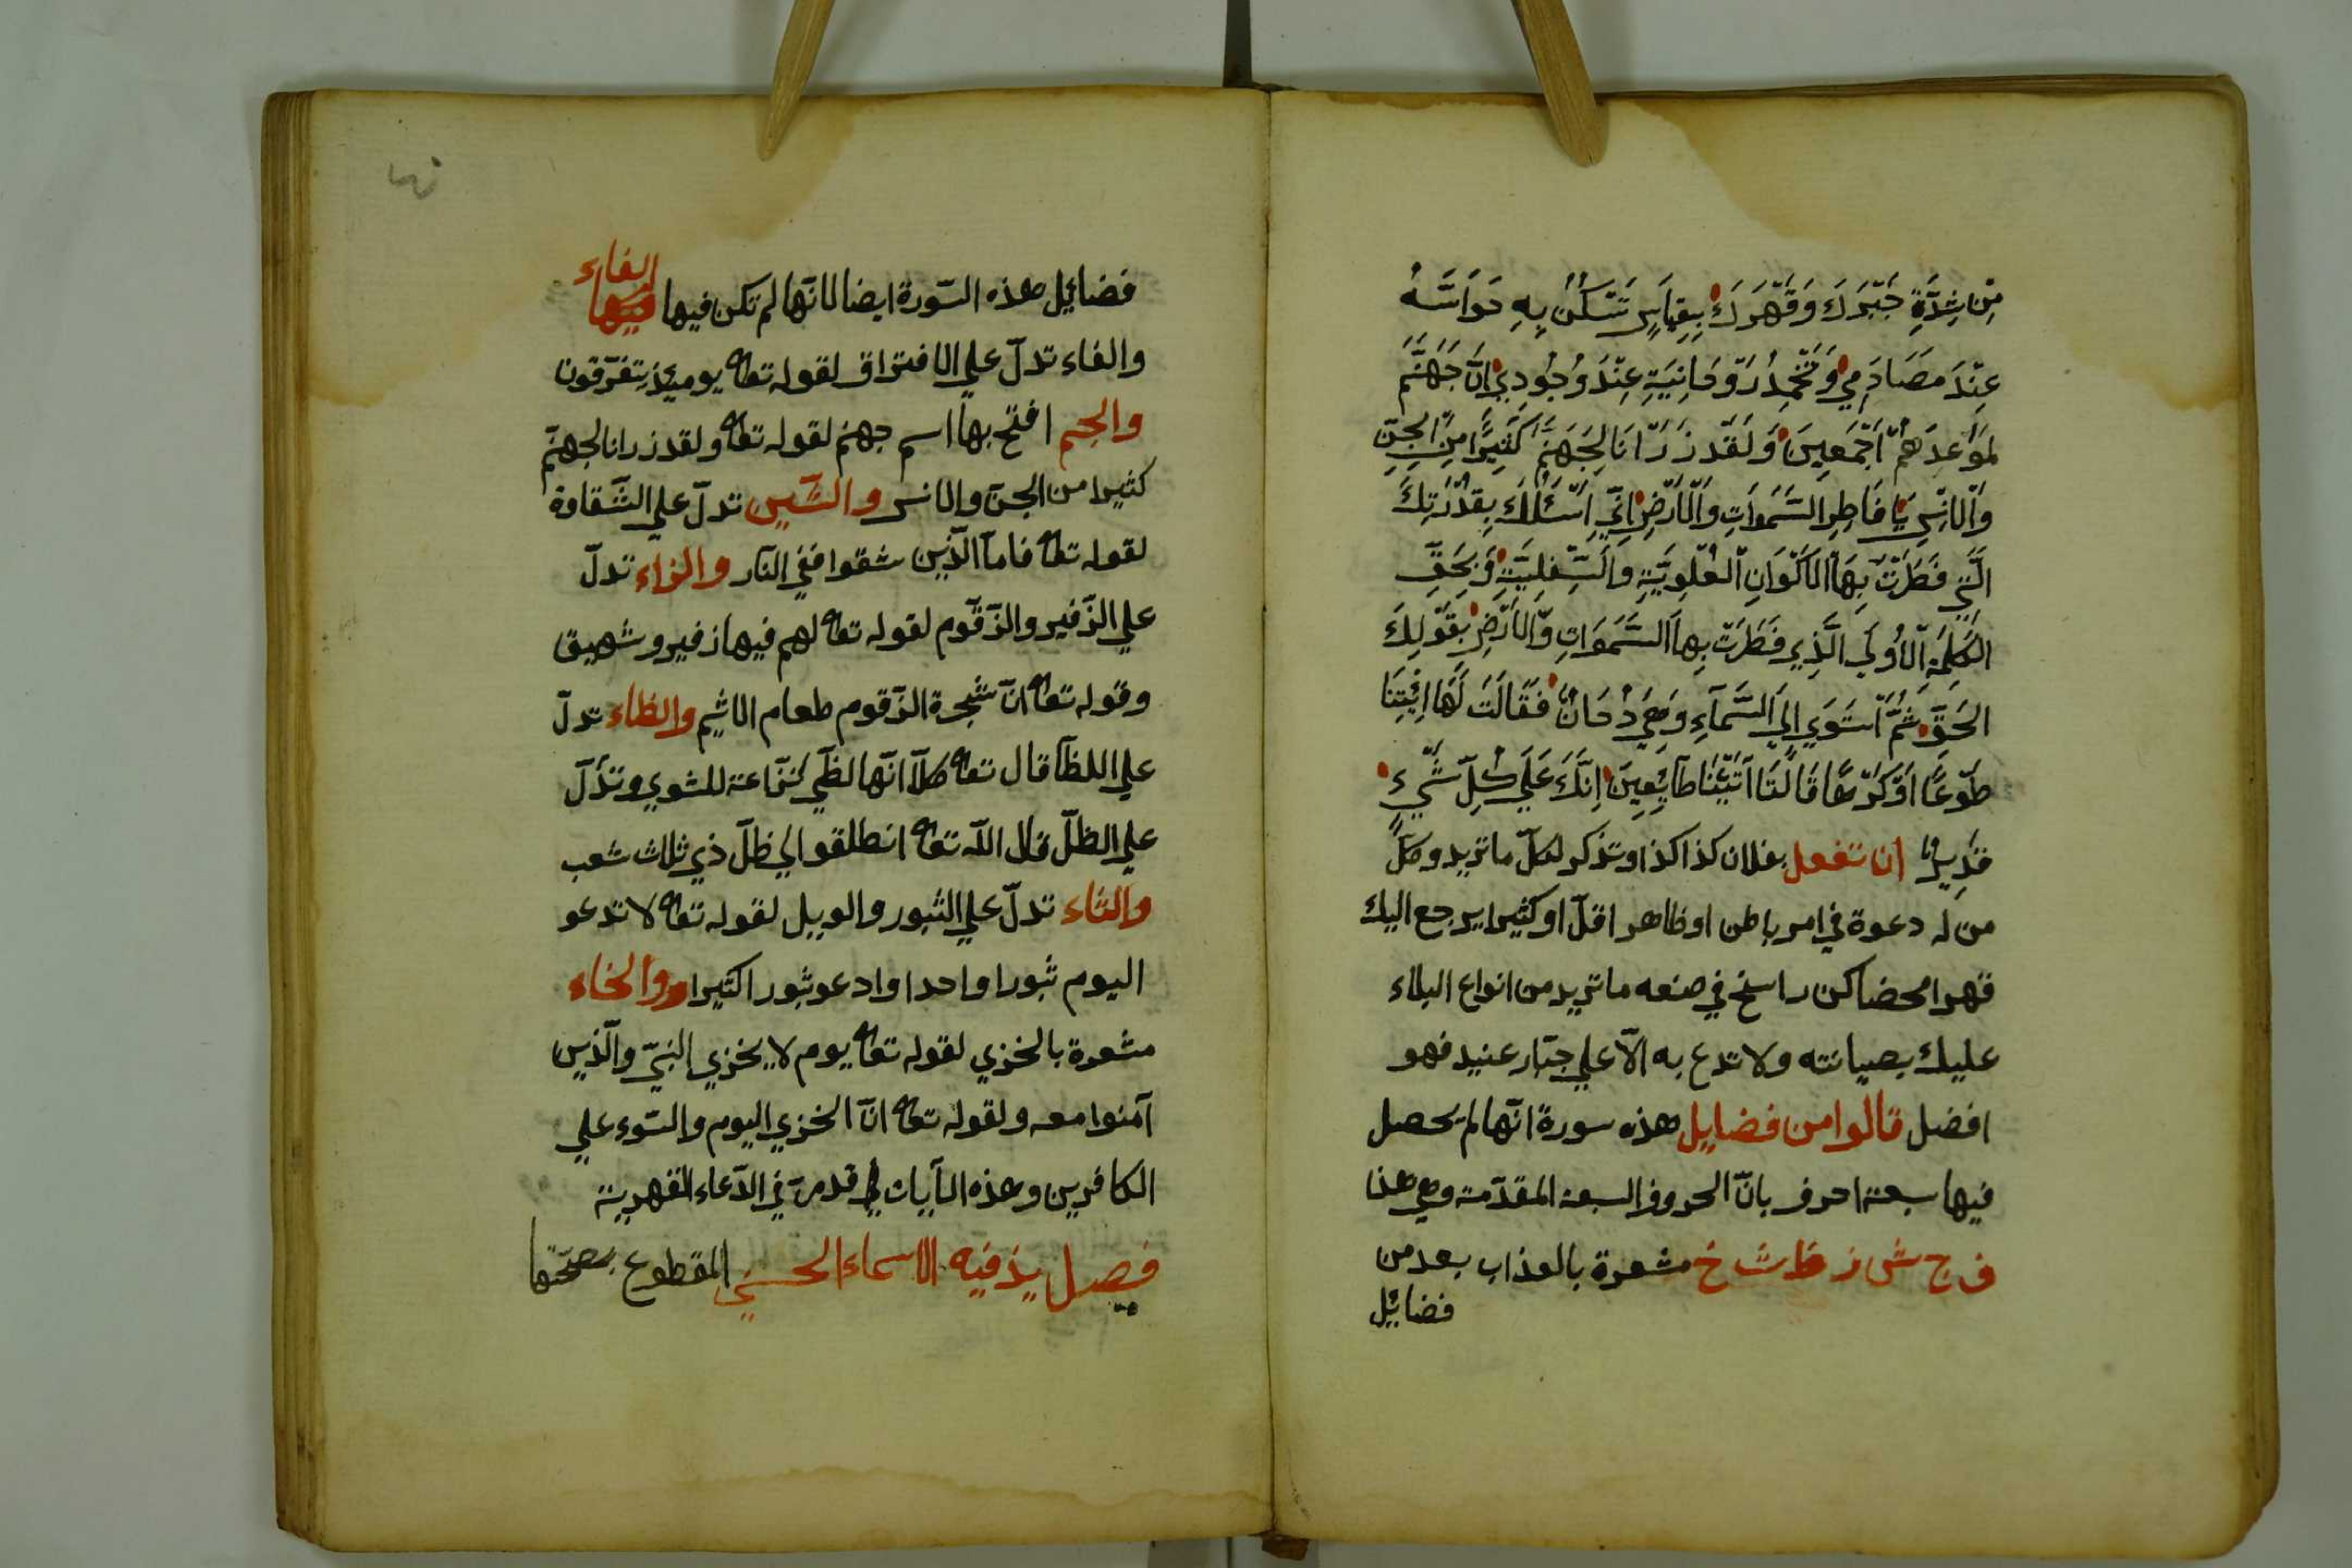 مِنْ شِدَّةِ جَبْرِكَ وَقَهْرِكَ بِقِيَاسٍ تَسْكُنُ بِهِ حَوَاسَّهُ
عِنْدَ مَصَادَمِي وَتَخْمِدُ رَوْحَانِيَتِهِ عِنْدَ وُجُودِي اِنَّ جَهَنَّمَ
لَمَوْعِدَهُمْ اَجْمَعِينَ وَلَقَدْ ذَرَاْنَا لِجَهَنَّمَ كَثِيرًا مِنَ الْجِنِّ
وَالْاِنْسِ يَا فَاطِرَ السَّمَوَاتِ وَالْاَرْضِ اِنِّي اَسْئَلُكَ بِقُدْرَتِكَ
الَّتِي فَطَرْتَ بِهَا الْاَكْوَانِ الْعُلْوِيَّةِ وَالسِّفْلِيَّةِ وَبِحَقِّ
الْكَلِمَةِ الْاُولَي الَّذِي فَطَرْتَ بِهَا السَّمَوَاتِ وَالْاَرْضِ بِقَوْلِكَ
الْحَقَّ ثُمَّ اسْتَوَي اِلَي السَّمَآءِ وَهِيَ دُخَانٌ فَقَالَ لَهَا ائْتِيَا
طَوْعًا اَوْ كَرْهًا قَالَتَا اَتَيْنَا طَآئِعِينَ اِنَّكَ عَلَي كُلِّ شَيْءٍ
قَدِيرٌ ان تفعل بفلان كذا كذا وتذكر لكلّ ما تريد وكلّ
من له دعوة في امر باطن او ظاهر اقلّ او كثيرا يرجع اليك
قهرا محضا كن راسخ في صنعه ما تريد من انواع البلاء
عليك بصيانته ولا تدع به الّا علي جبّار عنيد فهو
افضل قالوا من فضايل هذه سورة انّها لم يحصل
فيها سبعة احرف بانّ الحروف السبعة المقدّمة وهي هذا
ف ج ش ز ظ ث خ مشعرة بالعذاب بعد من
فضائيل
فضائيل هذه السّورة ايضا لانّها لم تكن فيها فيها الفاء
والفاء تدلّ علي الافتراق لقوله تعا يوميئذ يتفرّقون
والجيم افتح بها اسم جهنم لقوله تعا ولقد ذرانا لجهنّم
كثيرا من الجنّ والانس والشّين تدلّ علي الشّقاوة
لقوله تعا فامّا الّذين شقوا ففي النّار والزاء تدلّ
علي الزّفير والزّقّوم لقوله تعا لهم فيها زفير وشهيق
وقوله تعا انّ شجرة الزّقوم طعام الاثيم والظاء تدلّ
علي اللظّا قال تعا كلّا انّها لظّي نزّاعة للشوي وتدلّ
علي الظلّ قال الله تعا انطلقوا الي ظلّ ذي ثلاث شعب
والثاء تدلّ علي الثبور والويل لقوله تعا لا تدعو
اليوم ثبورا واحدا وادعو ثبورا كثيرا والخاء
مشعرة بالخزي لقوله تعا يوم لا يخزي النبيّ والّذين
آمنوا معه ولقوله تعا انّ الخزي اليوم والسّوء علي
الكافرين وهذه الآيات قدمت في الدّعاء القهرية
فصل يذ فيه الاسماء الحسني المقطوع بصحّتها